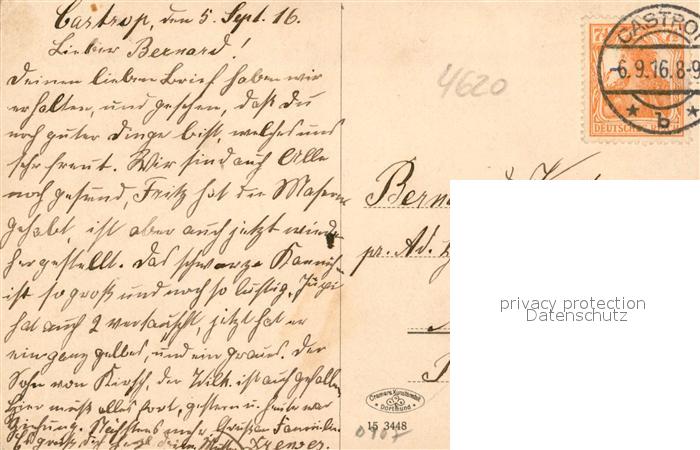 Castrop, den 5. Sept. 16.
Lieber Bernard!
Deinen lieben Brief haben wir
erhalten, und gesehen, daß du
noch guter Dinge bist, welches uns
sehr freut. Wir sind auch Alle
noch gesund, Fritz hat die Masern
gehabt, ist aber auch jetzt wieder
hergestellt. Das schwarze Kaninch-
ist so groß und noch so lustig,
hat auch 2 vertauscht, jetzt hat er
ein ganz gelbes, und ein graues. Der
Sohn von Kirsch, der Willi ist auch gefallen
hier muß alles fort, gestern u. heute war
Ziehung. Nächstens mehr. Grüße Familie
Es grüßt dich
4620
7½
DEUTSCHES
CASTROP
-6.9.16.8-9
* b *
pr. Ad.
Cramers Kunstanstalt
Dortmund
15 3448
privacy protection
Datenschutz